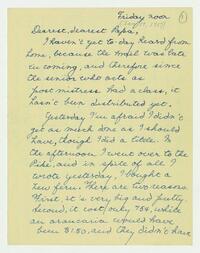 Friday noon
1
Dearest, dearest Papa,
I haven't yet to-day heard from
home, because the mail was late
in coming, and therefore since
the senior who acts as
post mistress had a class, it
hasn't been distributed yet.
Yesterday I'm afraid I didn't
get as much done as I should
have, though I did a little. In
the afternoon I went over to the
Pike, and in spite of all I
wrote yesterday, I bought a
new fern. There are two reasons.
First, it's very big and pretty.
Second, it cost only 75¢, while
an araucaria would have
been $1.50, and they didn't have